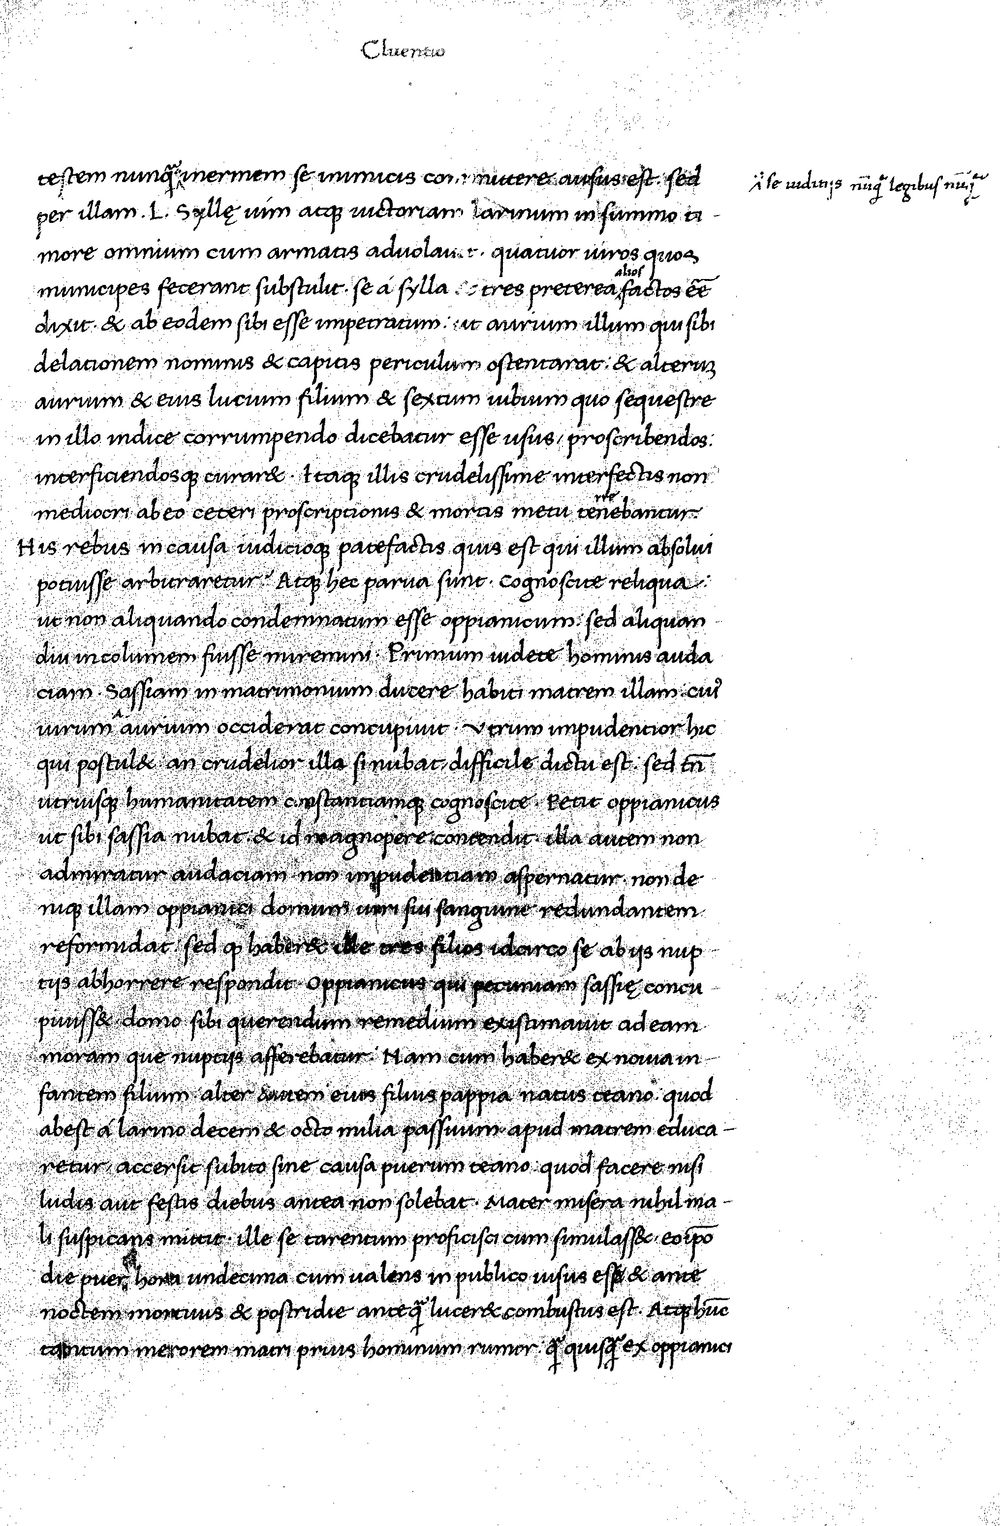 Cluentio
testem nunq̃ inermem se inimicis committere ausus est. sed
·/· se iuditijs nũq̃ legibus nũq̃
per illam . L . Syllę uim atq; uictoriam Larinum in summo ti -
more omnium cum armatis aduolauit . quatuor uiros quos
municipes fecerant substulit . se á sylla et tres preterea alios factos eẽ
dixit . & ab eodem sibi esse impetratum . ut aurium illum qui sibi
delationem nominis & capitis periculum ostentarat . & alterũ
aurium & eius lucium filium & sextum uibium quo sequestre
in illo indice corrumpendo dicebatur esse usus / proscribendos .
interficiendosq; curar& . Itaq; illis crudelissime interfectis non
mediocri ab eo ceteri proscriptionis & mortis metu tenerebantur .
His rebus in causa iudicioq; patefactis quis est qui illum absolui
potuisse arbitraretur ? Atq; hec parua sunt . Cognoscite reliqua .
ut non aliquando condemnatum esse oppianicum . sed aliquan -
diu incolumem fuisse miremini . Primum uidete hominis auda
ciam . Sassiam in matrimonium ducere habiti matrem illam . cui9
uirum aurium occiderat concupiuit . Vtrum impudentior hic
qui postul& an crudelior illa si nubat / difficile dictu est . sed tñ
utriusq; humanitatem constantiamq; cognoscite . Petit oppianicus
ut sibi sassia nubat . & id magnopere contendit . illa autem non
admiratur audaciam non impudentiam aspernatur . non de
niq; illam oppianici domum uiri sui sanguine redundantem
reformidat . sed q haber& ille tres filios idcirco se ab ijs nup -
tijs abhorrere respondit . Oppianicus qui pecuniam sassię concu -
piuiss& domo sibi querendum remedium existimauit ad eam
moram que nuptijs afferebatur . Nam cum haber& ex nouia in -
fantem filium . alter autem eius filius pappia natus teano . quod
abest á larino decem & octo milia passuum apud matrem educa -
retur / accersit subito sine causa puerum teano . quod facere nisi
ludis aut festis diebus antea non solebat . Mater misera nihil ma -
li suspicans mittit . ille se tarentum proficisci cum simulass& eo ipõ
die puer hora undecima cum ualens in publico uisus ess& & ante
noctem mortuus & postridie anteq̃ lucer& combustus est . Atq; hũc
tantum merorem matri prius hominum rumor . q̃ quisq̃ ex oppianici